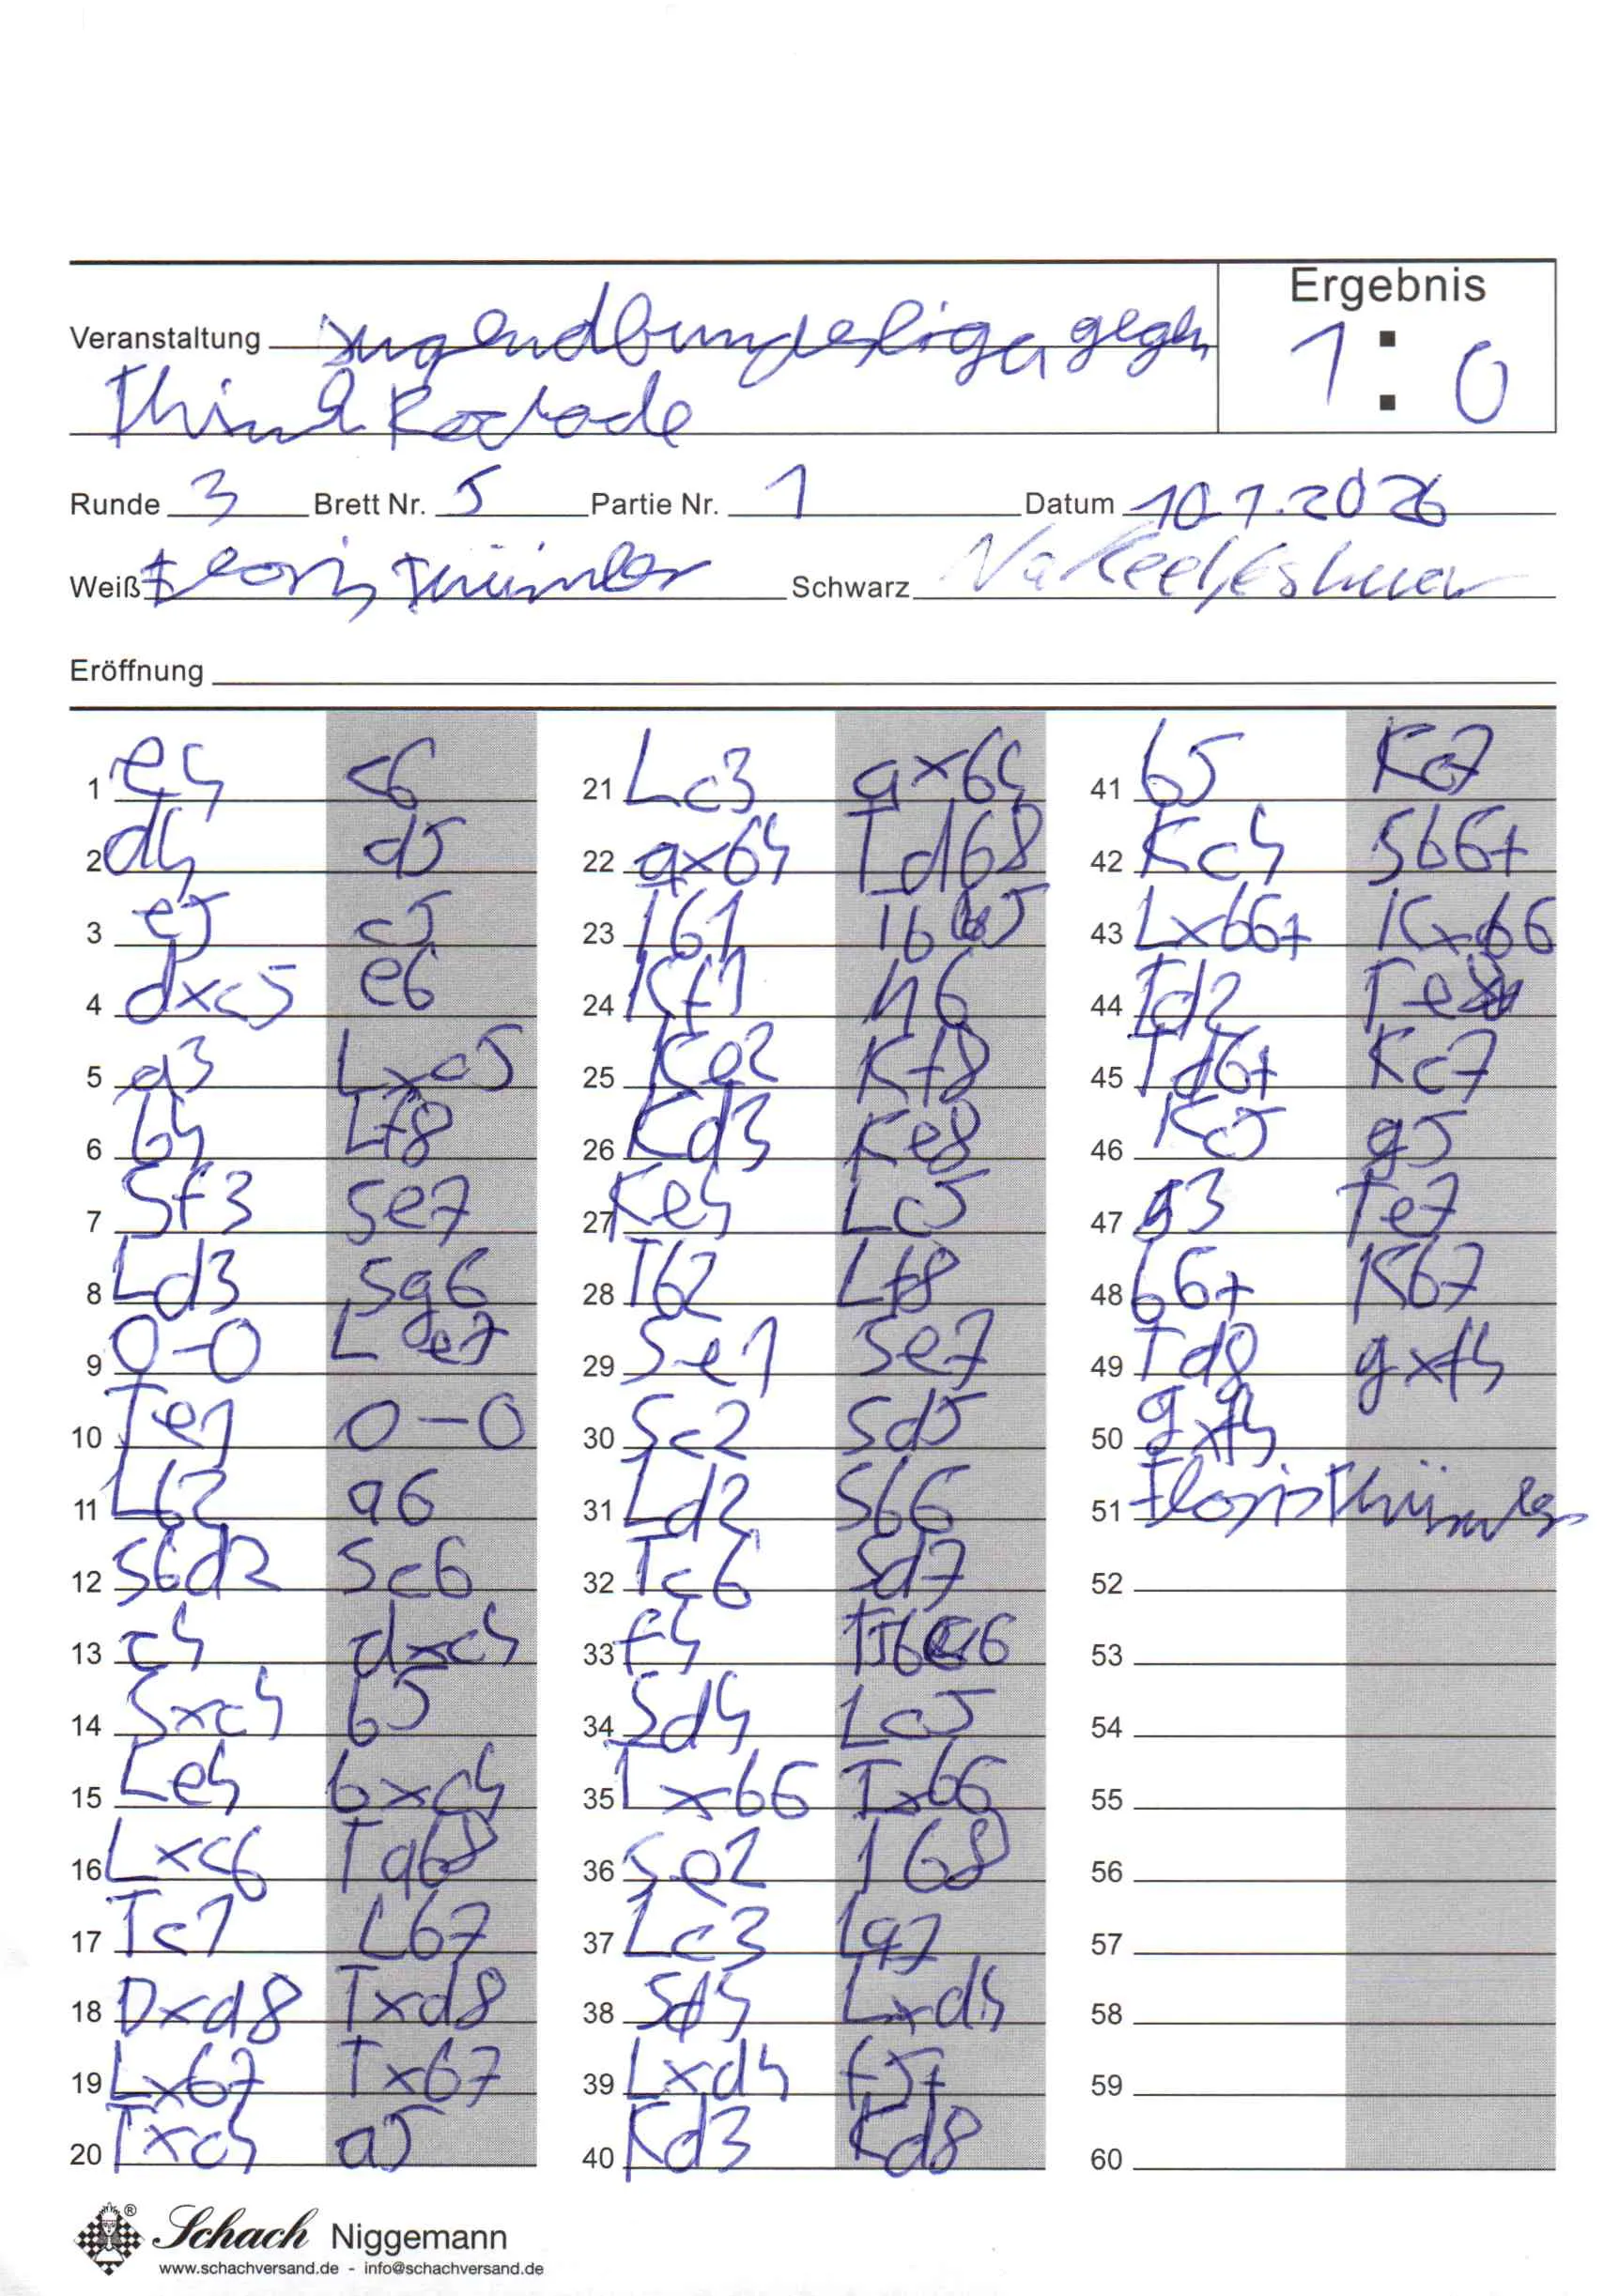 Ergebnis
Veranstaltung Jugendbundesliga gegen
1 : 0
Think Rochade
Runde 3 Brett Nr. 5 Partie Nr. 1 Datum 10.1.2026
Weiß Floris Thümler Schwarz
Eröffnung
1 e4 c6
2 d4 d5
3 e5 c5
4 dxc5 e6
5 a3 Lxc5
6 b4 Lf8
7 Sf3 Se7
8 Ld3 Sg6
9 0-0 Le7
10 Te1 0-0
11 Lb2 a6
12 Sbd2 Sc6
13 c4 dxc4
14 Sxc4 b5
15 Le4 bxc4
16 Lxc6 Tab8
17 Tc1 Lb7
18 Dxd8 Txd8
19 Lxb7 Txb7
20 Txc4 a5
21 Lc3 axb4
22 axb4 Tdb8
23 Tb1 Tb5
24 Kf1 h6
25 Ke2 Kf8
26 Kd3 Ke8
27 Ke4 Lc5
28 Tb2 Lf8
29 Se1 Se7
30 Sc2 Sd5
31 Ld2 Sb6
32 Tc6 Sd7
33 f4
34 Sd4 Lc5
35 Lxb6 Txb6
36 Se2 Tb8
37 Lc3 La7
38 Sd4 Lxd4
39 Lxd4 f5+
40 Kd3 Kd8
41 b5 Kc7
42 Kc4 Sb6+
43 Lxb6+ Kxb6
44 Td2 Te8
45 Td6+ Kc7
46 Kc5 g5
47 g3 Te7
48 b6+ Kb7
49 Td8 gxf4
50 gxf4
51 Floris Thümler
52
53
54
55
56
57
58
59
60
Schach Niggemann
www.schachversand.de - info@schachversand.de